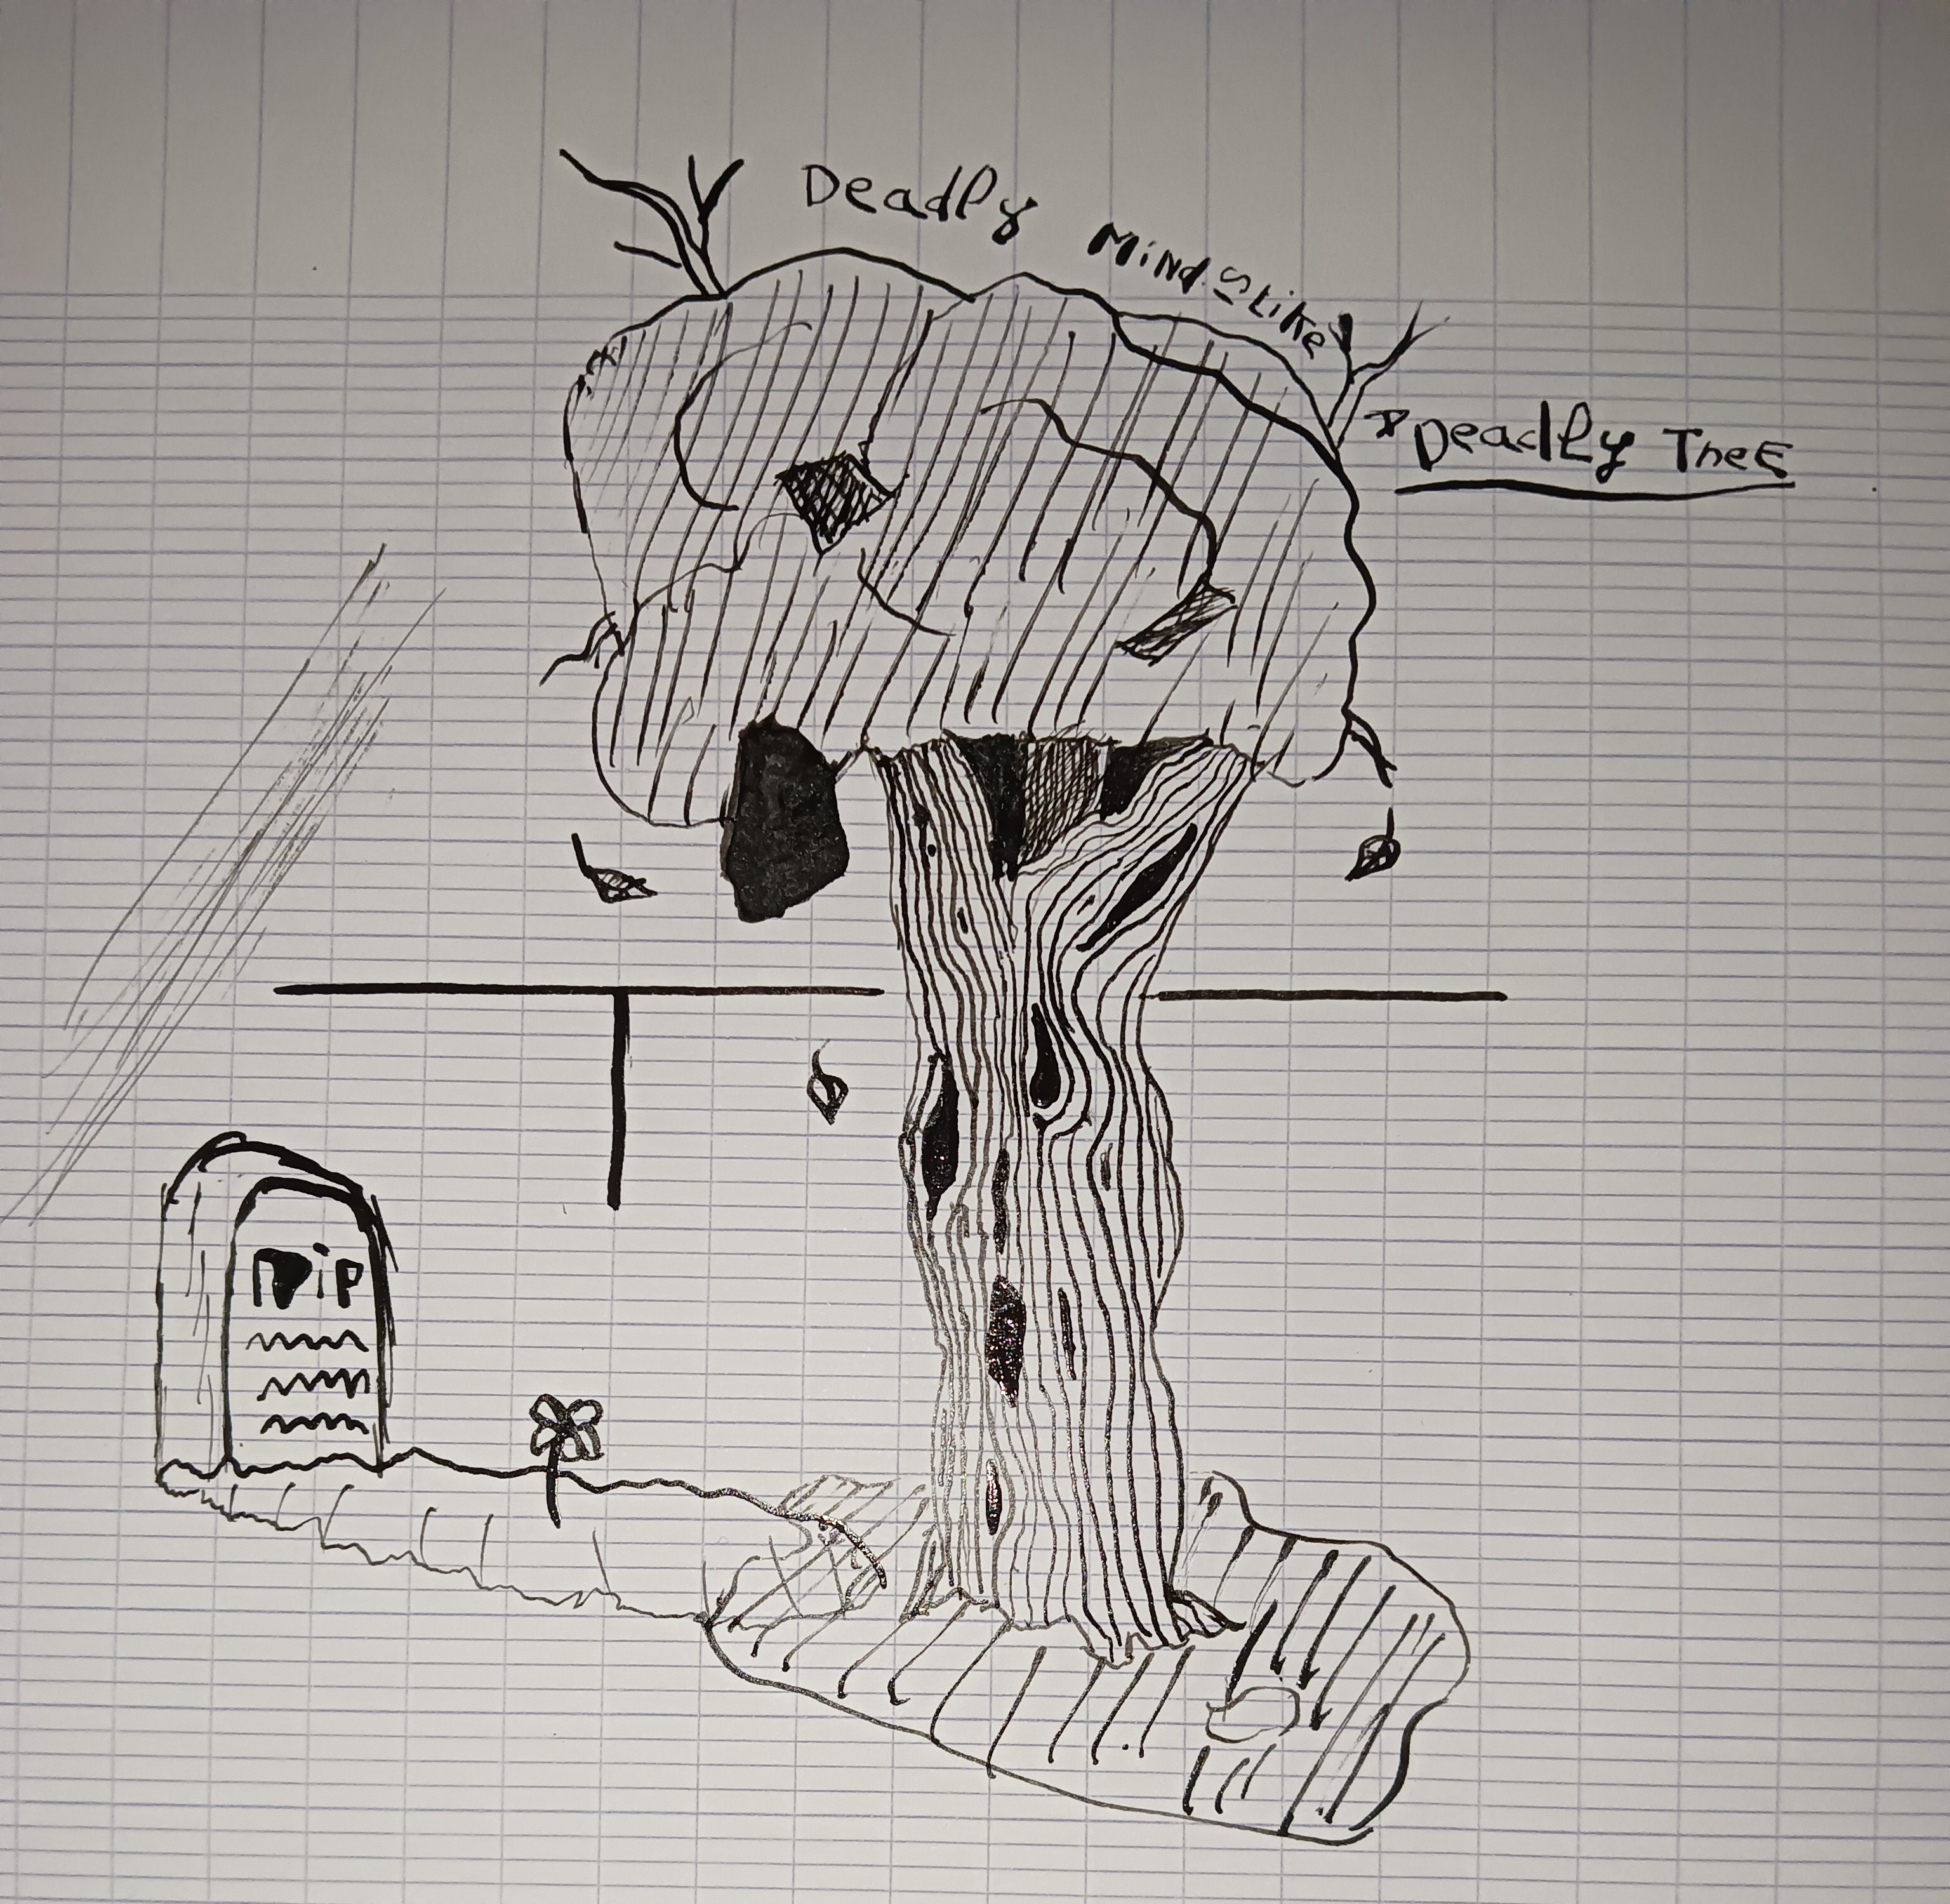 Deadly Minds Like
Deadly TreE
rip